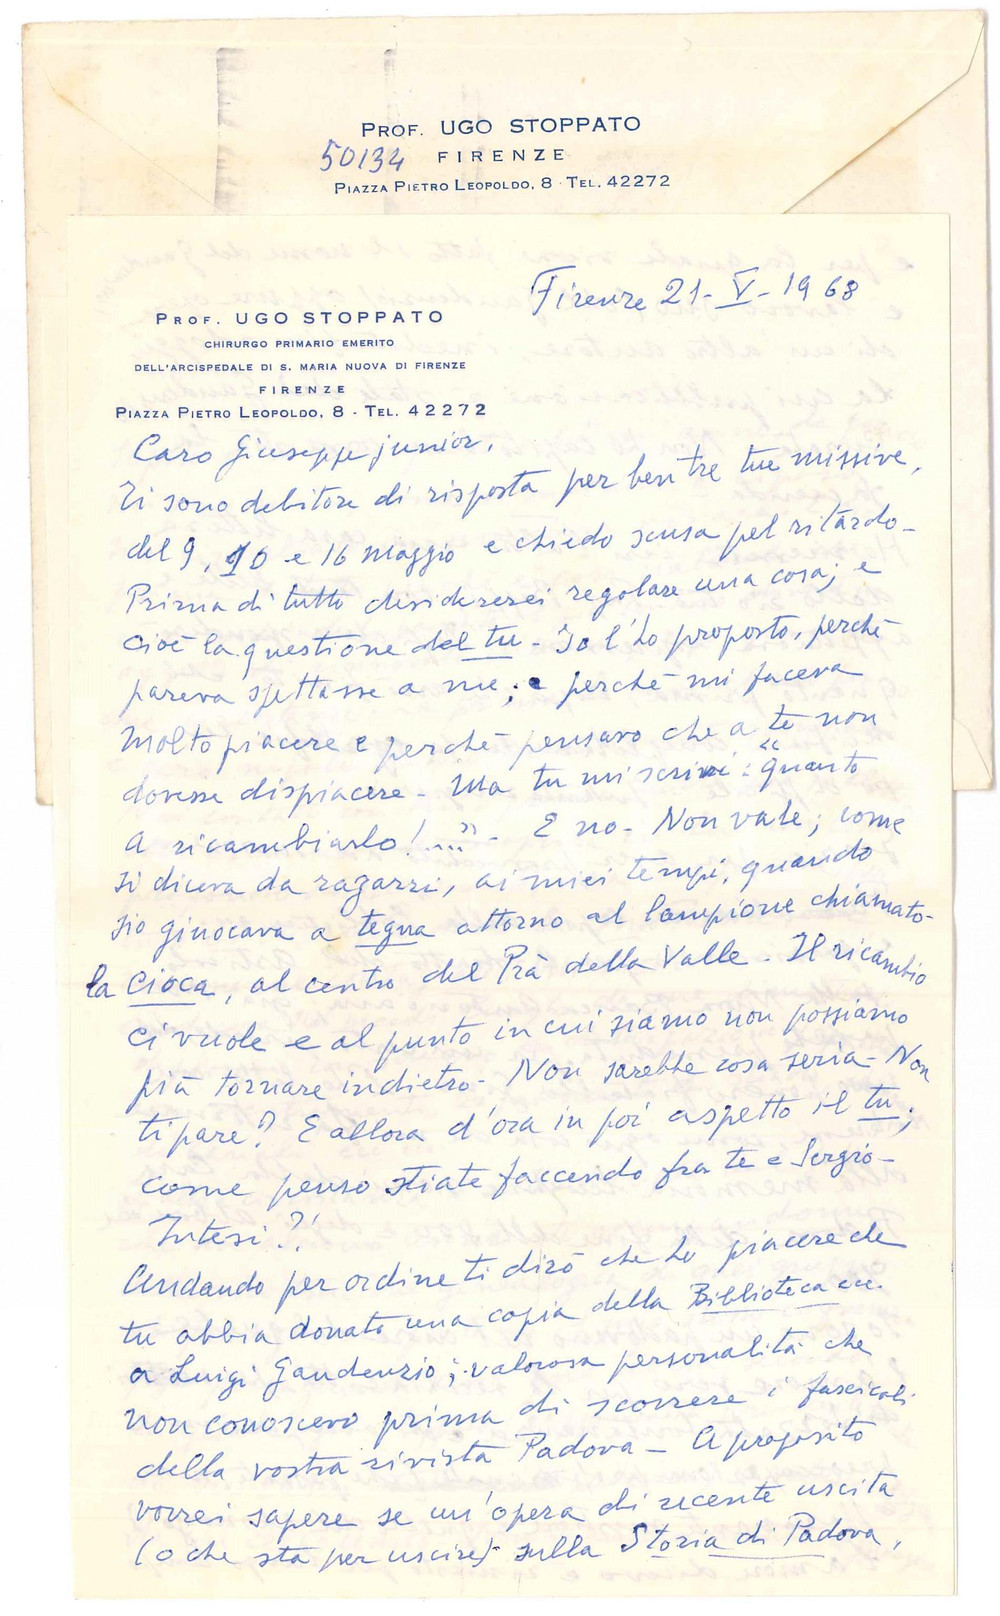 PROF. UGO STOPPATO
50134 FIRENZE
PIAZZA PIETRO LEOPOLDO, 8 · TEL. 42272
Firenze 21-V-1968
PROF. UGO STOPPATO
CHIRURGO PRIMARIO EMERITO
DELL'ARCISPEDALE DI S. MARIA NUOVA DI FIRENZE
FIRENZE
PIAZZA PIETRO LEOPOLDO, 8 - TEL. 42272
Caro Giuseppe junior,
Ti sono debitore di risposta per ben tre tue missive,
del 9, 10 e 16 maggio e chiedo scusa pel ritardo-
Prima di tutto desidererei regolare una cosa; e
cioè la questione del tu - Io l'ho proposto, perchè
pareva spettasse a me; e perchè mi faceva
molto piacere e perchè pensavo che a te non
dovesse dispiacere - Ma tu mi scrivi: "quanto
a ricambiarlo!...." - E no - Non vale; come
si diceva da ragazzi, ai miei tempi, quando
sio giuocava a tegna attorno al lampione chiamato-
la cioca, al centro del Prà della Valle - Il ricambio
ci vuole e al punto in cui siamo non possiamo
più tornare indietro - Non sarebbe cosa seria - Non
ti pare? E allora d'ora in poi aspetto il tu;
come penso stiate faccendo fra te e Sergio -
Intesi?!
Andando per ordine ti dirò che ho piacere che
tu abbia donato una copia della Biblioteca ecc.
a Luigi Gaudenzio; valorosa personalità che
non conoscevo prima di scorrere i fascicoli
della vostra rivista Padova - A proposito
vorrei sapere se un'opera di recente uscita
(o che sta per uscire) sulla Storia di Padova,